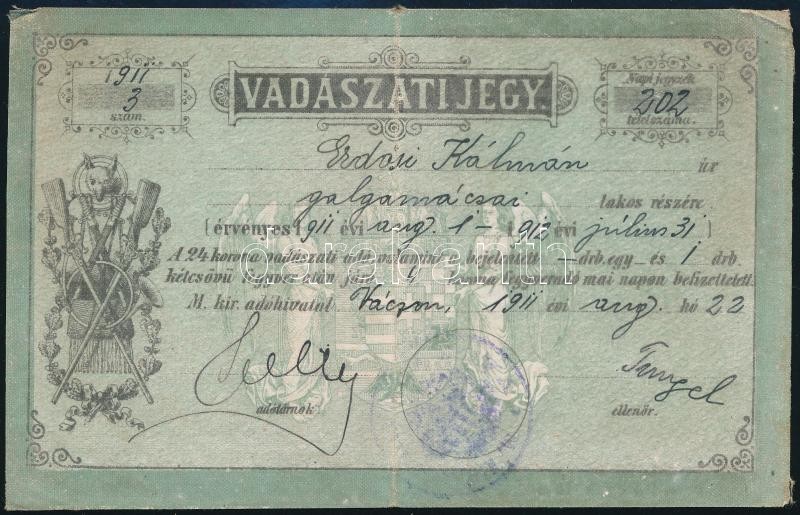 1911
3
szám.
VADÁSZATI JEGY.
Napi jegyzék
202
tételszáma.
Erdosi Kálmán úr
galgamácsai lakos részére
(érvényes 1911 évi aug. 1 - 1912 évi július 31)
A 24 korona vadászati adó, valamint a bejelentett — drb. egy- és 1 drb.
kétcsövű fegyver után járó 4 korona fegyveradó mai napon befizettetett.
M. kir. adóhivatal Váczon, 1911 évi aug. hó 22
adótárnok
ellenőr.